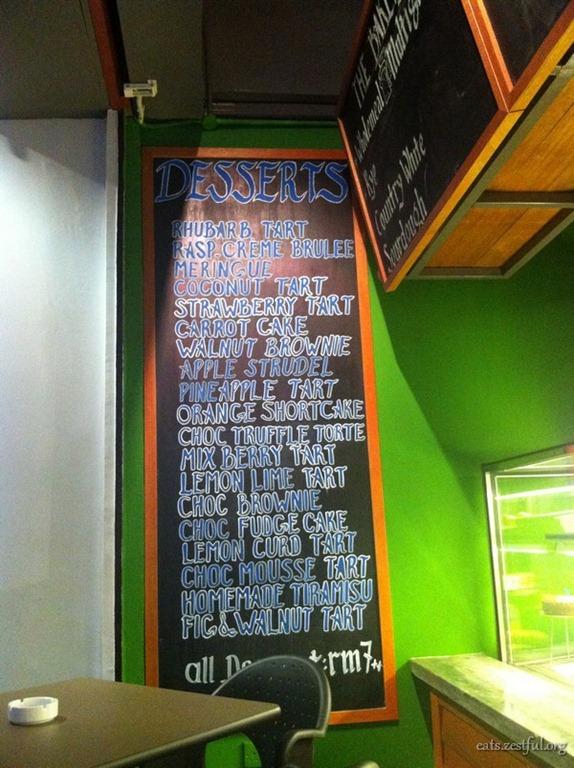 DESSERTS
RHUBARB TART
RASP. CREME BRULEE
MERINGUE
COCONUT TART
STRAWBERRY TART
CARROT CAKE
WALNUT BROWNIE
APPLE STRUDEL
PINEAPPLE TART
ORANGE SHORTCAKE
CHOC TRUFFLE TORTE
MIX BERRY TART
LEMON LIME TART
CHOC BROWNIE
CHOC FUDGE CAKE
LEMON CURD TART
CHOC MOUSSE TART
HOMEMADE TIRAMISU
FIG & WALNUT TART
all rm7++
THE
Wholemeal
Rye
Country White
Sourdough
eats.zestful.org